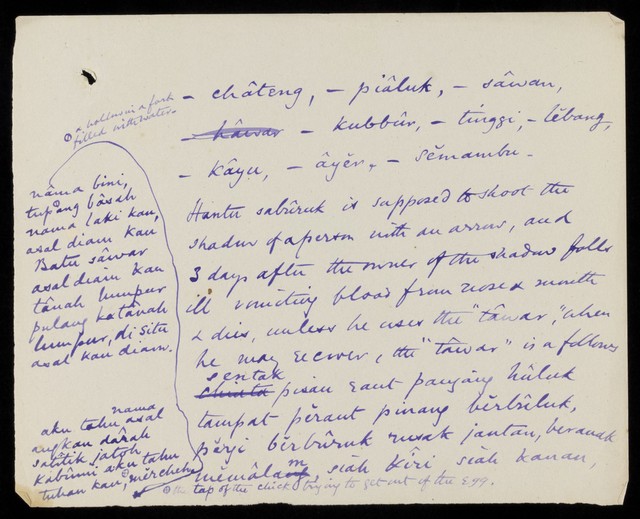 – châteng, – piâluk, – sâwan,
– kâwar – kubbûr, – tinggi, – lĕbang,
– kâyu, – âyĕr, – sĕmambu –
Hantu sabûruk is supposed to shoot the
shadow of a person with an arrow, and
3 days after the owner of the shadow falls
ill vomiting blood from nose & mouth
& dies, unless he uses the "tâwar", when
he may recover, the "tâwar" is as follows
sentak
pisau raut panjâng hûluk
tampat pĕraut pinang bĕrbûluk,
pĕrgi bĕrbûruk rusak jantan, beranak
mĕmâlam, siah kîri siah kanan,
a hollow in a fork
filled with water.
nâma bini,
tupang bâsah
nama laki kau,
asal diam kau
Batu sâwar
asal diam kau
tânah lumpur
pulang ka tânah
lumpur, di situ
asal kau diam.
nama
aku tahu asal
angkau dârah
satitik jatoh
kabûmi aku tahu
tuhan kau, mĕrcheh
the tap of the chick trying to get out of the egg.